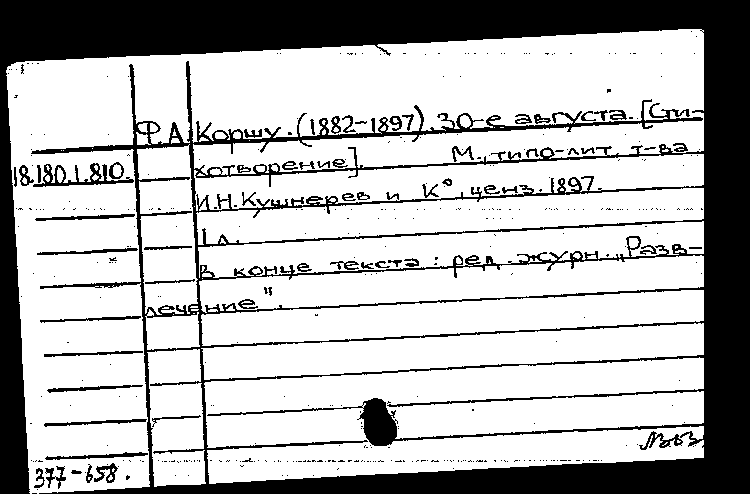 Ф.А. Коршу. (1882-1897). 30-е августа. [Сти-
18.180.1.810. хотворение]. М., типо-лит. т-ва
И.Н. Кушнерев и К°, ценз. 1897.
1 л.
В конце текста: ред. журн. „Разв-
лечение".
377-658.